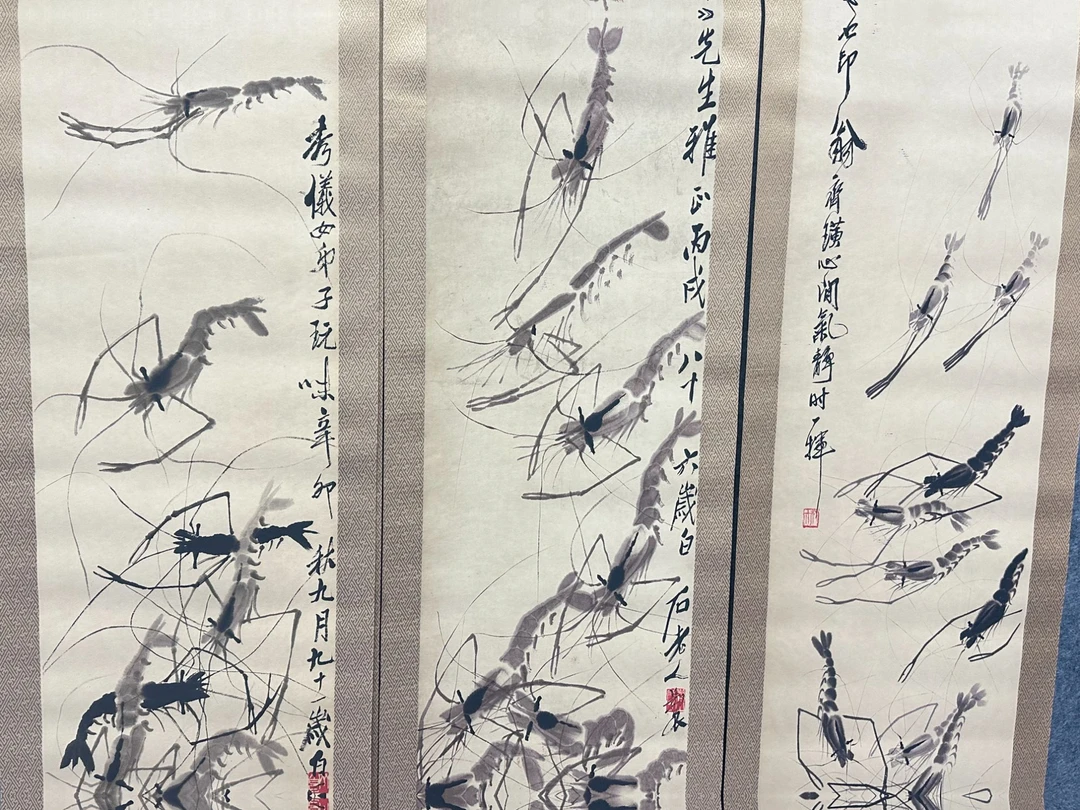 先生雅正丙戌八十六歲白
石老人
石印翁齊璜心閒氣靜时一揮
秀儀女弟子玩味辛卯秋九月九十歲白